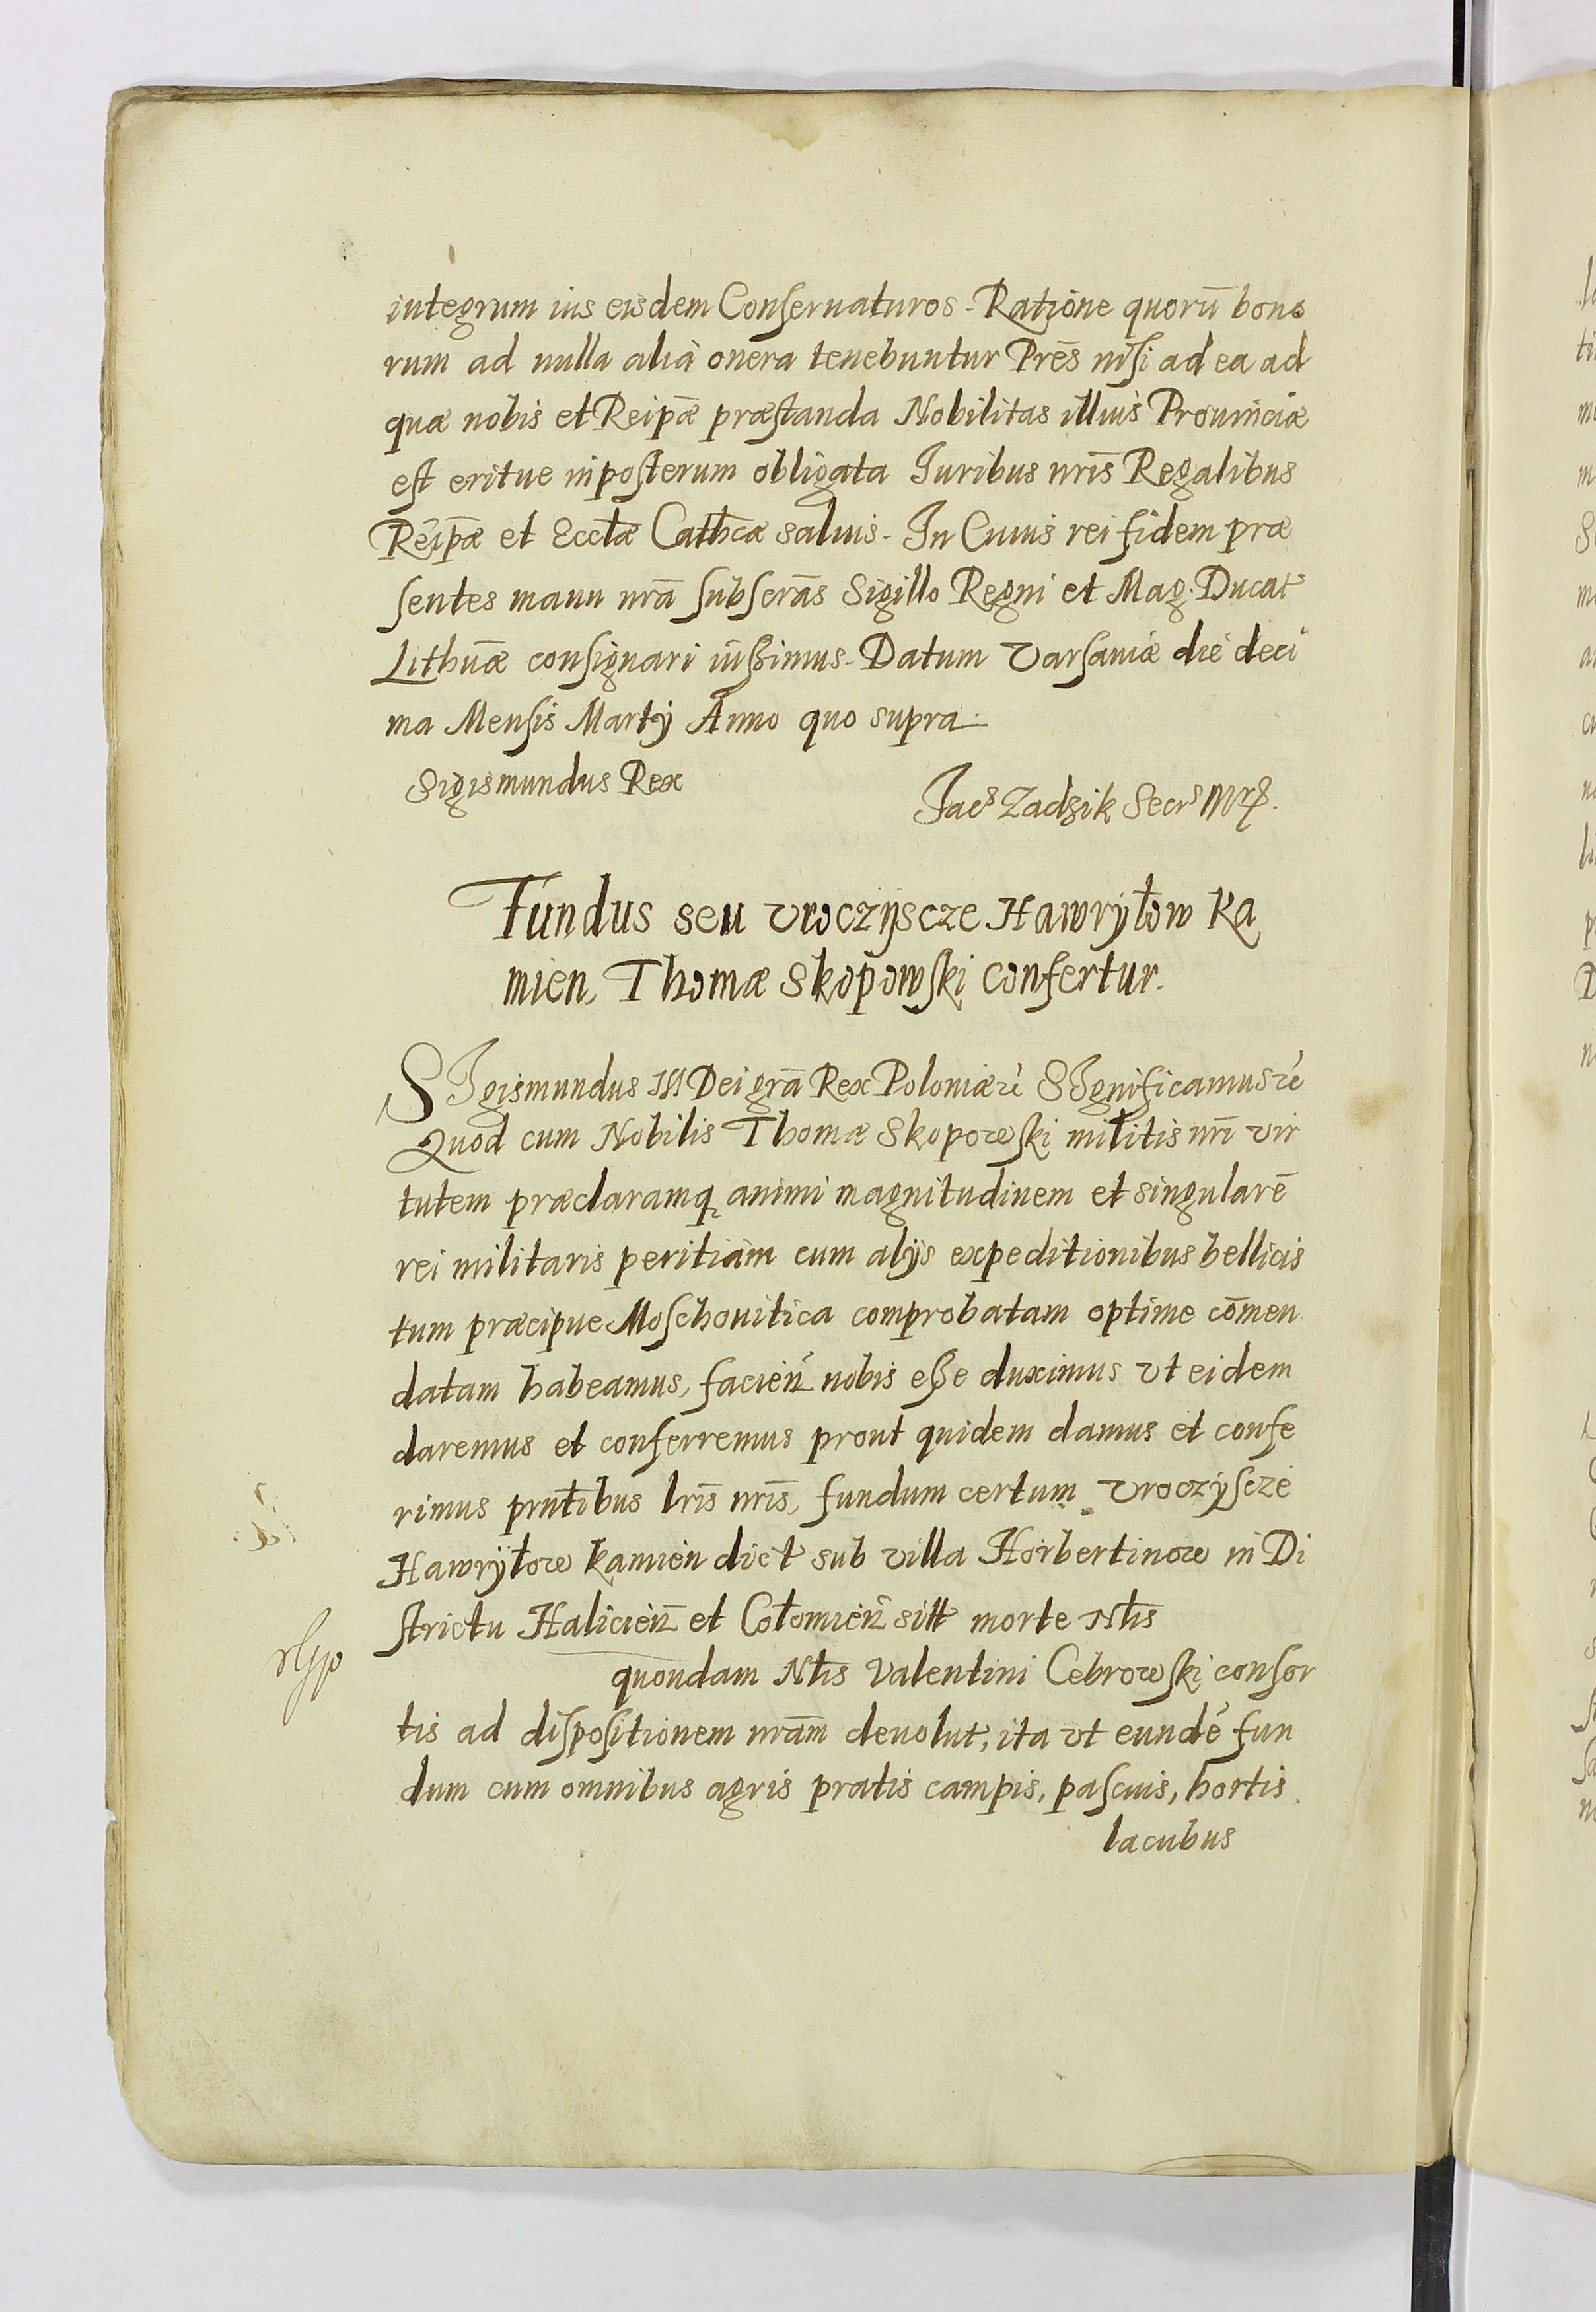 integrum ius eisdem Conseruaturos. Ratione quorū bono
rum ad nulla alia onera tenebuntur Prēs nisi ad ea ad
quæ nobis et Reipæ præstanda Nobilitas illius Prouinciæ
est eritue inposterum obligata Juribus nrīs Regalibus
Reipæ et Eccłæ Cathcæ saluis. In Cuius rei fidem præ
sentes manu nrā subscrās Sigillo Regni et Mag. Ducat
Lithuæ consignari iussimus. Datum Varsauiæ die deci
ma Mensis Martÿ Anno quo supra.
Sigismundus Rex
Jacs Zadzik Secrs
Fundus seu vroczÿscze Hawryłow Ka
mien, Thomæ Skopowski confertur.
SIgismundus III Dei grā Rex Poloniæ Significamus
Quod cum Nobilis Thomæ Skopowski militis nrī vir
tutem præclaramq animi magnitudinem et singularē
rei militaris peritiam cum alÿs expeditionibus bellicis
tum præcipue Moschouitica comprobatam optime cōmen
datam habeamus, facien nobis esse duximus vt eidem
daremus et conferremus prout quidem damus et confe
rimus prntibus lrīs nrīs, fundum certum vroczyscze
Hawryłow Kamien dict sub villa Horbertinow in Di
strictu Halicien et Cołomien sitt morte Nłis
quondam Nłis Valentini Cebrowski consor
tis ad dispositionem nrām deuolut, ita vt eundē fun
dum cum omnibus agris pratis campis, pascuis, hortis
lacubus